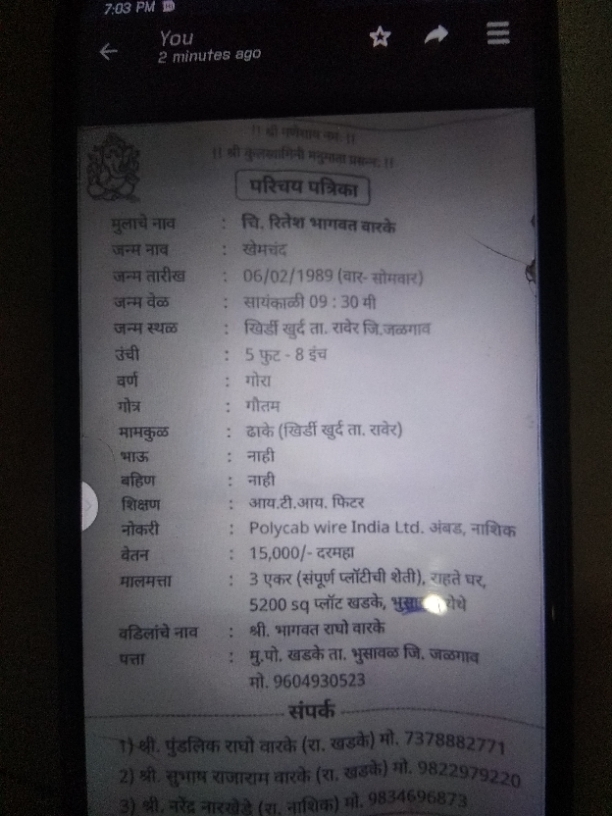 7:03 PM
You
2 minutes ago
|| श्री गणेशाय नमः ||
|| श्री कुलस्वामिनी मनुमाता प्रसन्न: ||
परिचय पत्रिका
मुलाचे नाव : चि. रितेश भागवत वारके
जन्म नाव : खेमचंद
जन्म तारीख : 06/02/1989 (वार- सोमवार)
जन्म वेळ : सायंकाळी 09 : 30 मी
जन्म स्थळ : खिर्डी खुर्द ता. रावेर जि.जळगाव
उंची : 5 फुट - 8 इंच
वर्ण : गोरा
गोत्र : गौतम
मामकुळ : ढाके (खिर्डी खुर्द ता. रावेर)
भाऊ : नाही
बहिण : नाही
शिक्षण : आय.टी.आय. फिटर
नोकरी : Polycab wire India Ltd. अंबड, नाशिक
वेतन : 15,000/- दरमहा
मालमत्ता : 3 एकर (संपूर्ण प्लॉटीची शेती), राहते घर,
5200 sq प्लॉट खडके, येथे
वडिलांचे नाव : श्री. भागवत राघो वारके
पत्ता : मु.पो. खडके ता. भुसावळ जि. जळगाव
मो. 9604930523
संपर्क
1) श्री. पुंडलिक राघो वारके (रा. खडके) मो. 7378882771
2) श्री. सुभाष राजाराम वारके (रा. खडके) मो. 9822979220
3) श्री. नरेंद्र नारखेडे (रा. नाशिक) मो. 9834696873